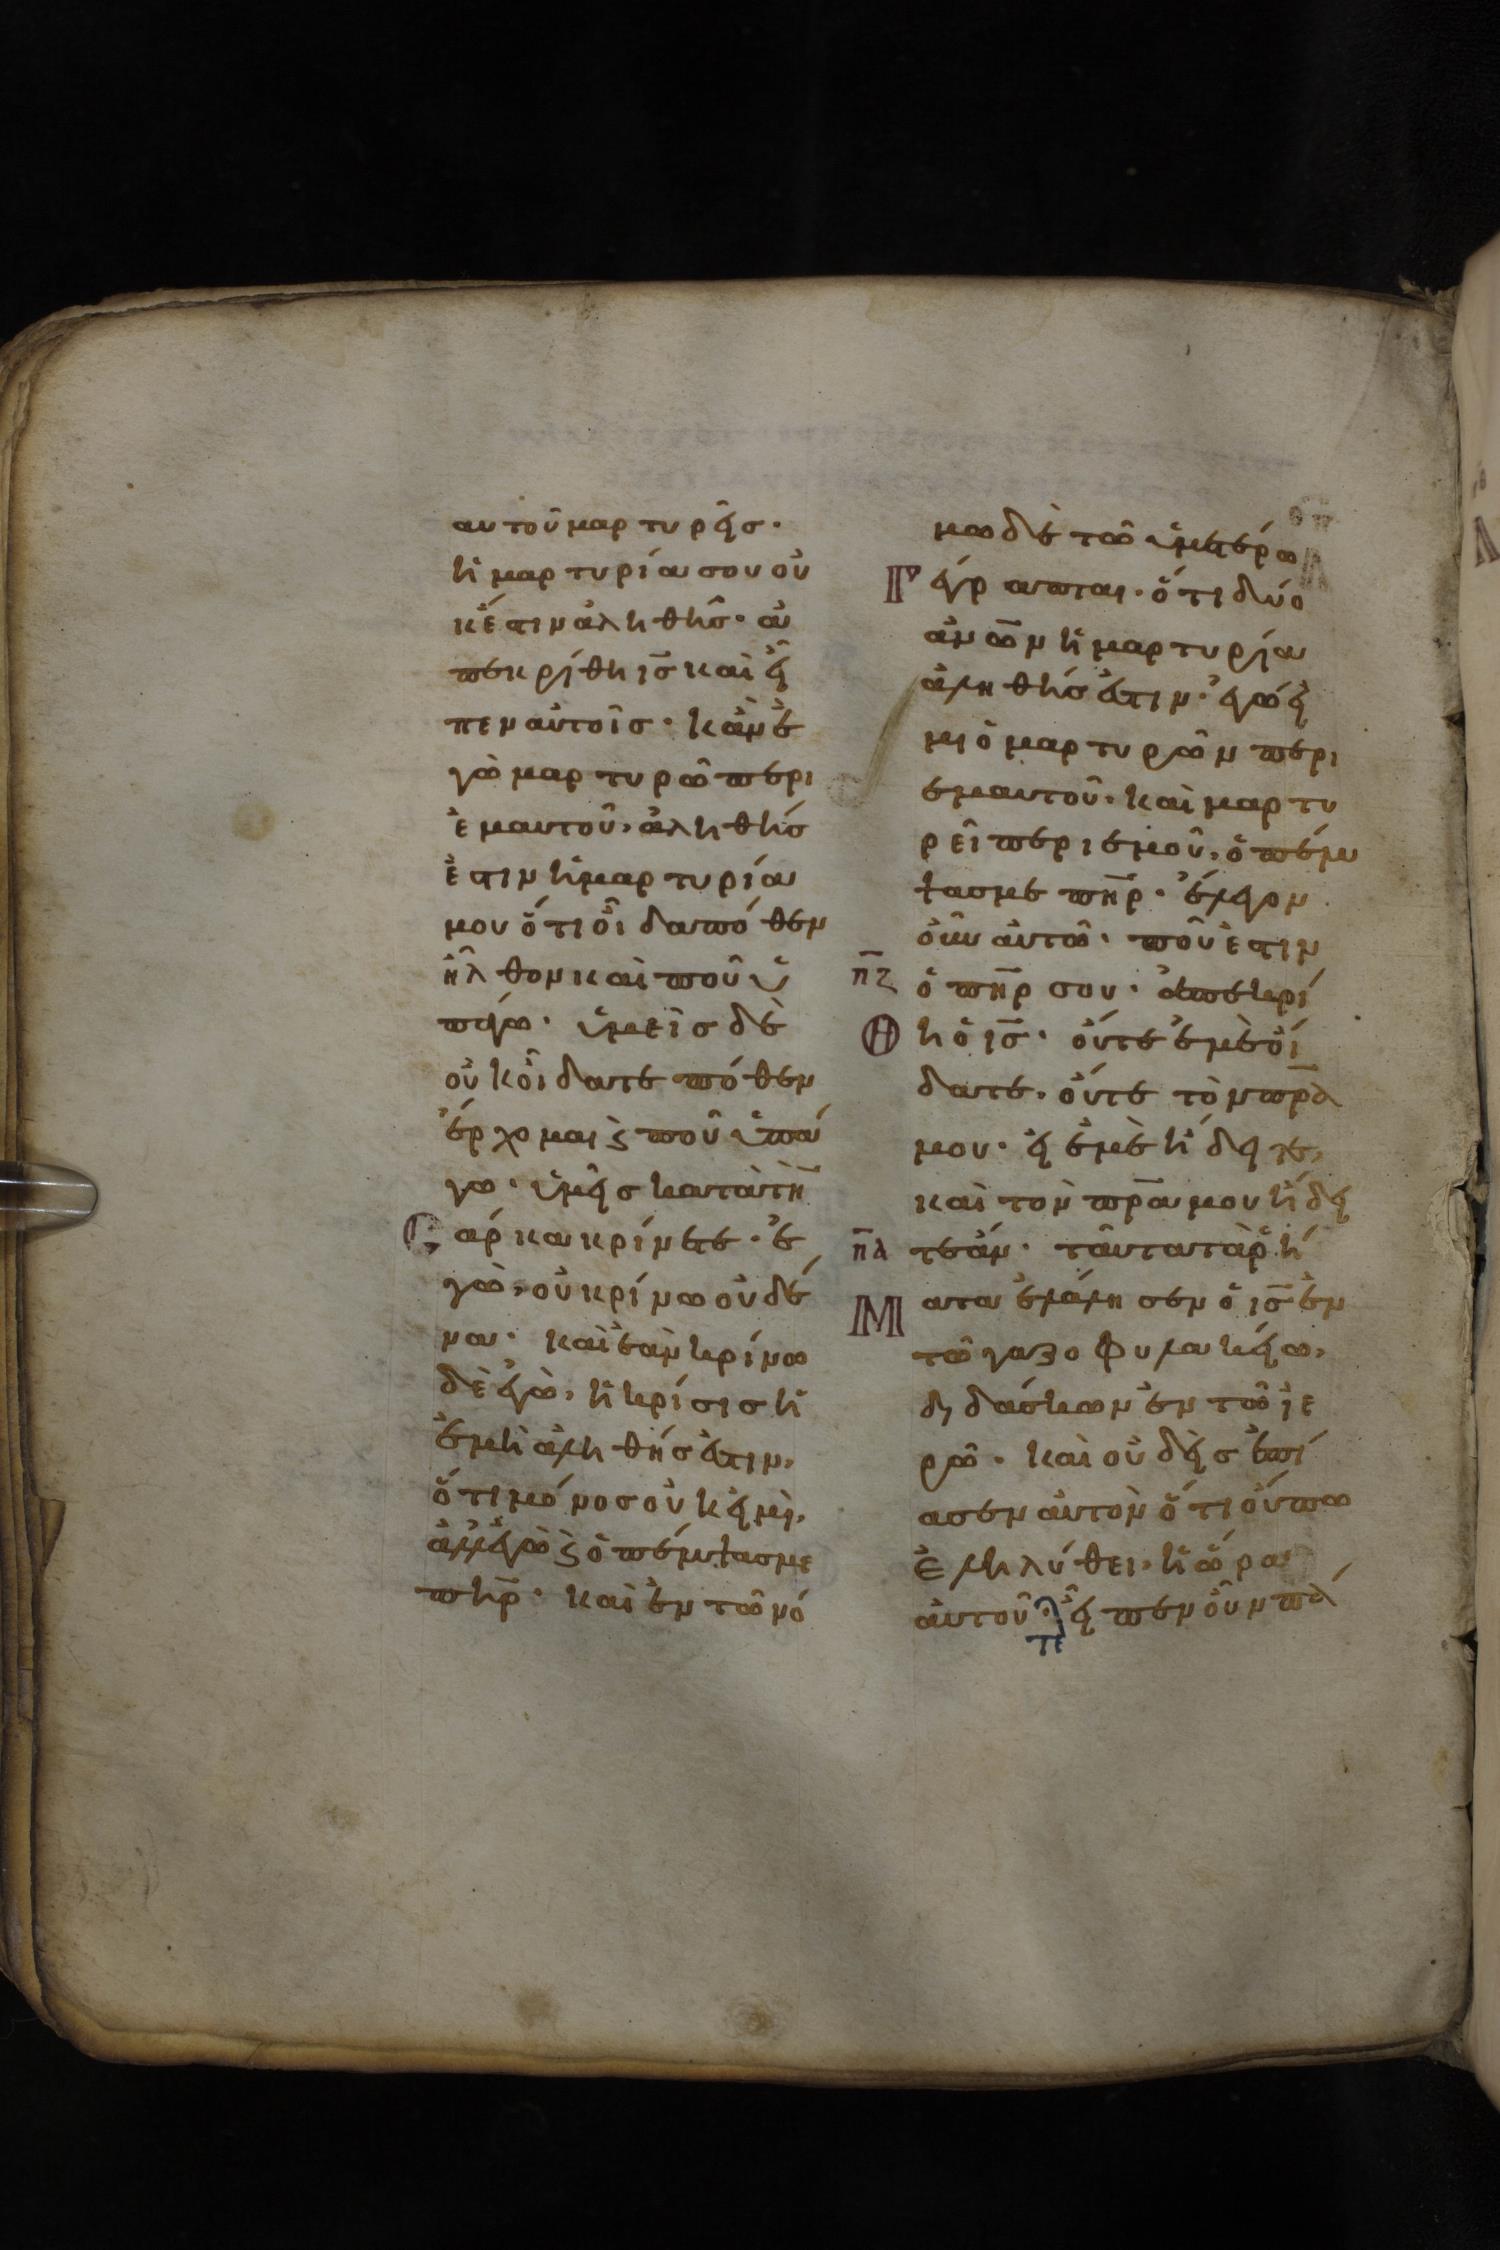 αυτοῦ μαρτυρεῖσ·
ἡ μαρτυρία σου οὐ
κέστιν ἀληθῆσ· ἀ
πεκρίθη ι̅σ̅ καὶ εἶ
πεν αὐτοῖσ· κἀν ἐ
γὼ μαρτυρῶ περι
ἐμαυτοῦ, ἀληθήσ
ἐστιν ἡ μαρτυρία
μου ὅτι οἶδα πόθεν
ἦλθον καὶ ποῦ ὑ
πάγω· ὑμεῖσ δὲ
οὐκ οἶδατε πόθεν
ἔρχομαι ϗ ποῦ ὑπά
γω· ὑμεῖσ κατὰ τὴ̅
Σάρκα κρίνετε· ἐ
γὼ, οὐ κρίνω οὐδέ
να· καὶ ἐὰν κρίνω
δὲ ἐγὼ, ἡ κρίσισ ἡ
ἐμὴ ἀληθήσ ἐστιν,
ὅτι μόνοσ οὐκ εἰμὶ,
ἀλλ' ἐγὼ ϗ ὁ πέμψασ με
π̅η̅ρ̅· καὶ ἐν τῶ νό
μω δὲ τῶ ὑμετέρω
Γέγραπται· ὅτι δύο
ἀν̅ω̅ν ἡ μαρτυρία
ἀληθήσ ἐστιν· ἐγώ εἰ
μι ὁ μαρτυρῶν περι
εμαυτοῦ· καὶ μαρτυ
ρεῖ περι εμοῦ, ὁ πέμ
ψασ με π̅η̅ρ̅· ἔλεγον
οὖν αὐτῶ· ποῦ ἐστιν
π̅ζ̅ ὁ π̅η̅ρ̅ σου· ἀπεκρί
Θη ὁ ι̅σ̅· οὔτε ἐμὲ οἴ
δατε, οὔτε τὸν π̅ρ̅α̅
μου· εἰ ἐμὲ ἤδειτε,
καὶ τὸν π̅ρ̅α̅ μου ἤδει
π̅λ̅ τε ἀν· ταῦτα τὰ ῥή
Ματα ἐλάλησεν ὁ ι̅σ̅ ἐν
τῶ γαζοφυλακείω,
διδάσκων ἐν τῶ ἱε
ρῶ· καὶ οὐδεὶσ ἐπί
ασεν αὐτὸν ὅτι οὔπω
Ἐληλύθει, ἡ ὥρα
αὐτοῦ· εἶπεν οὖν πά
τε